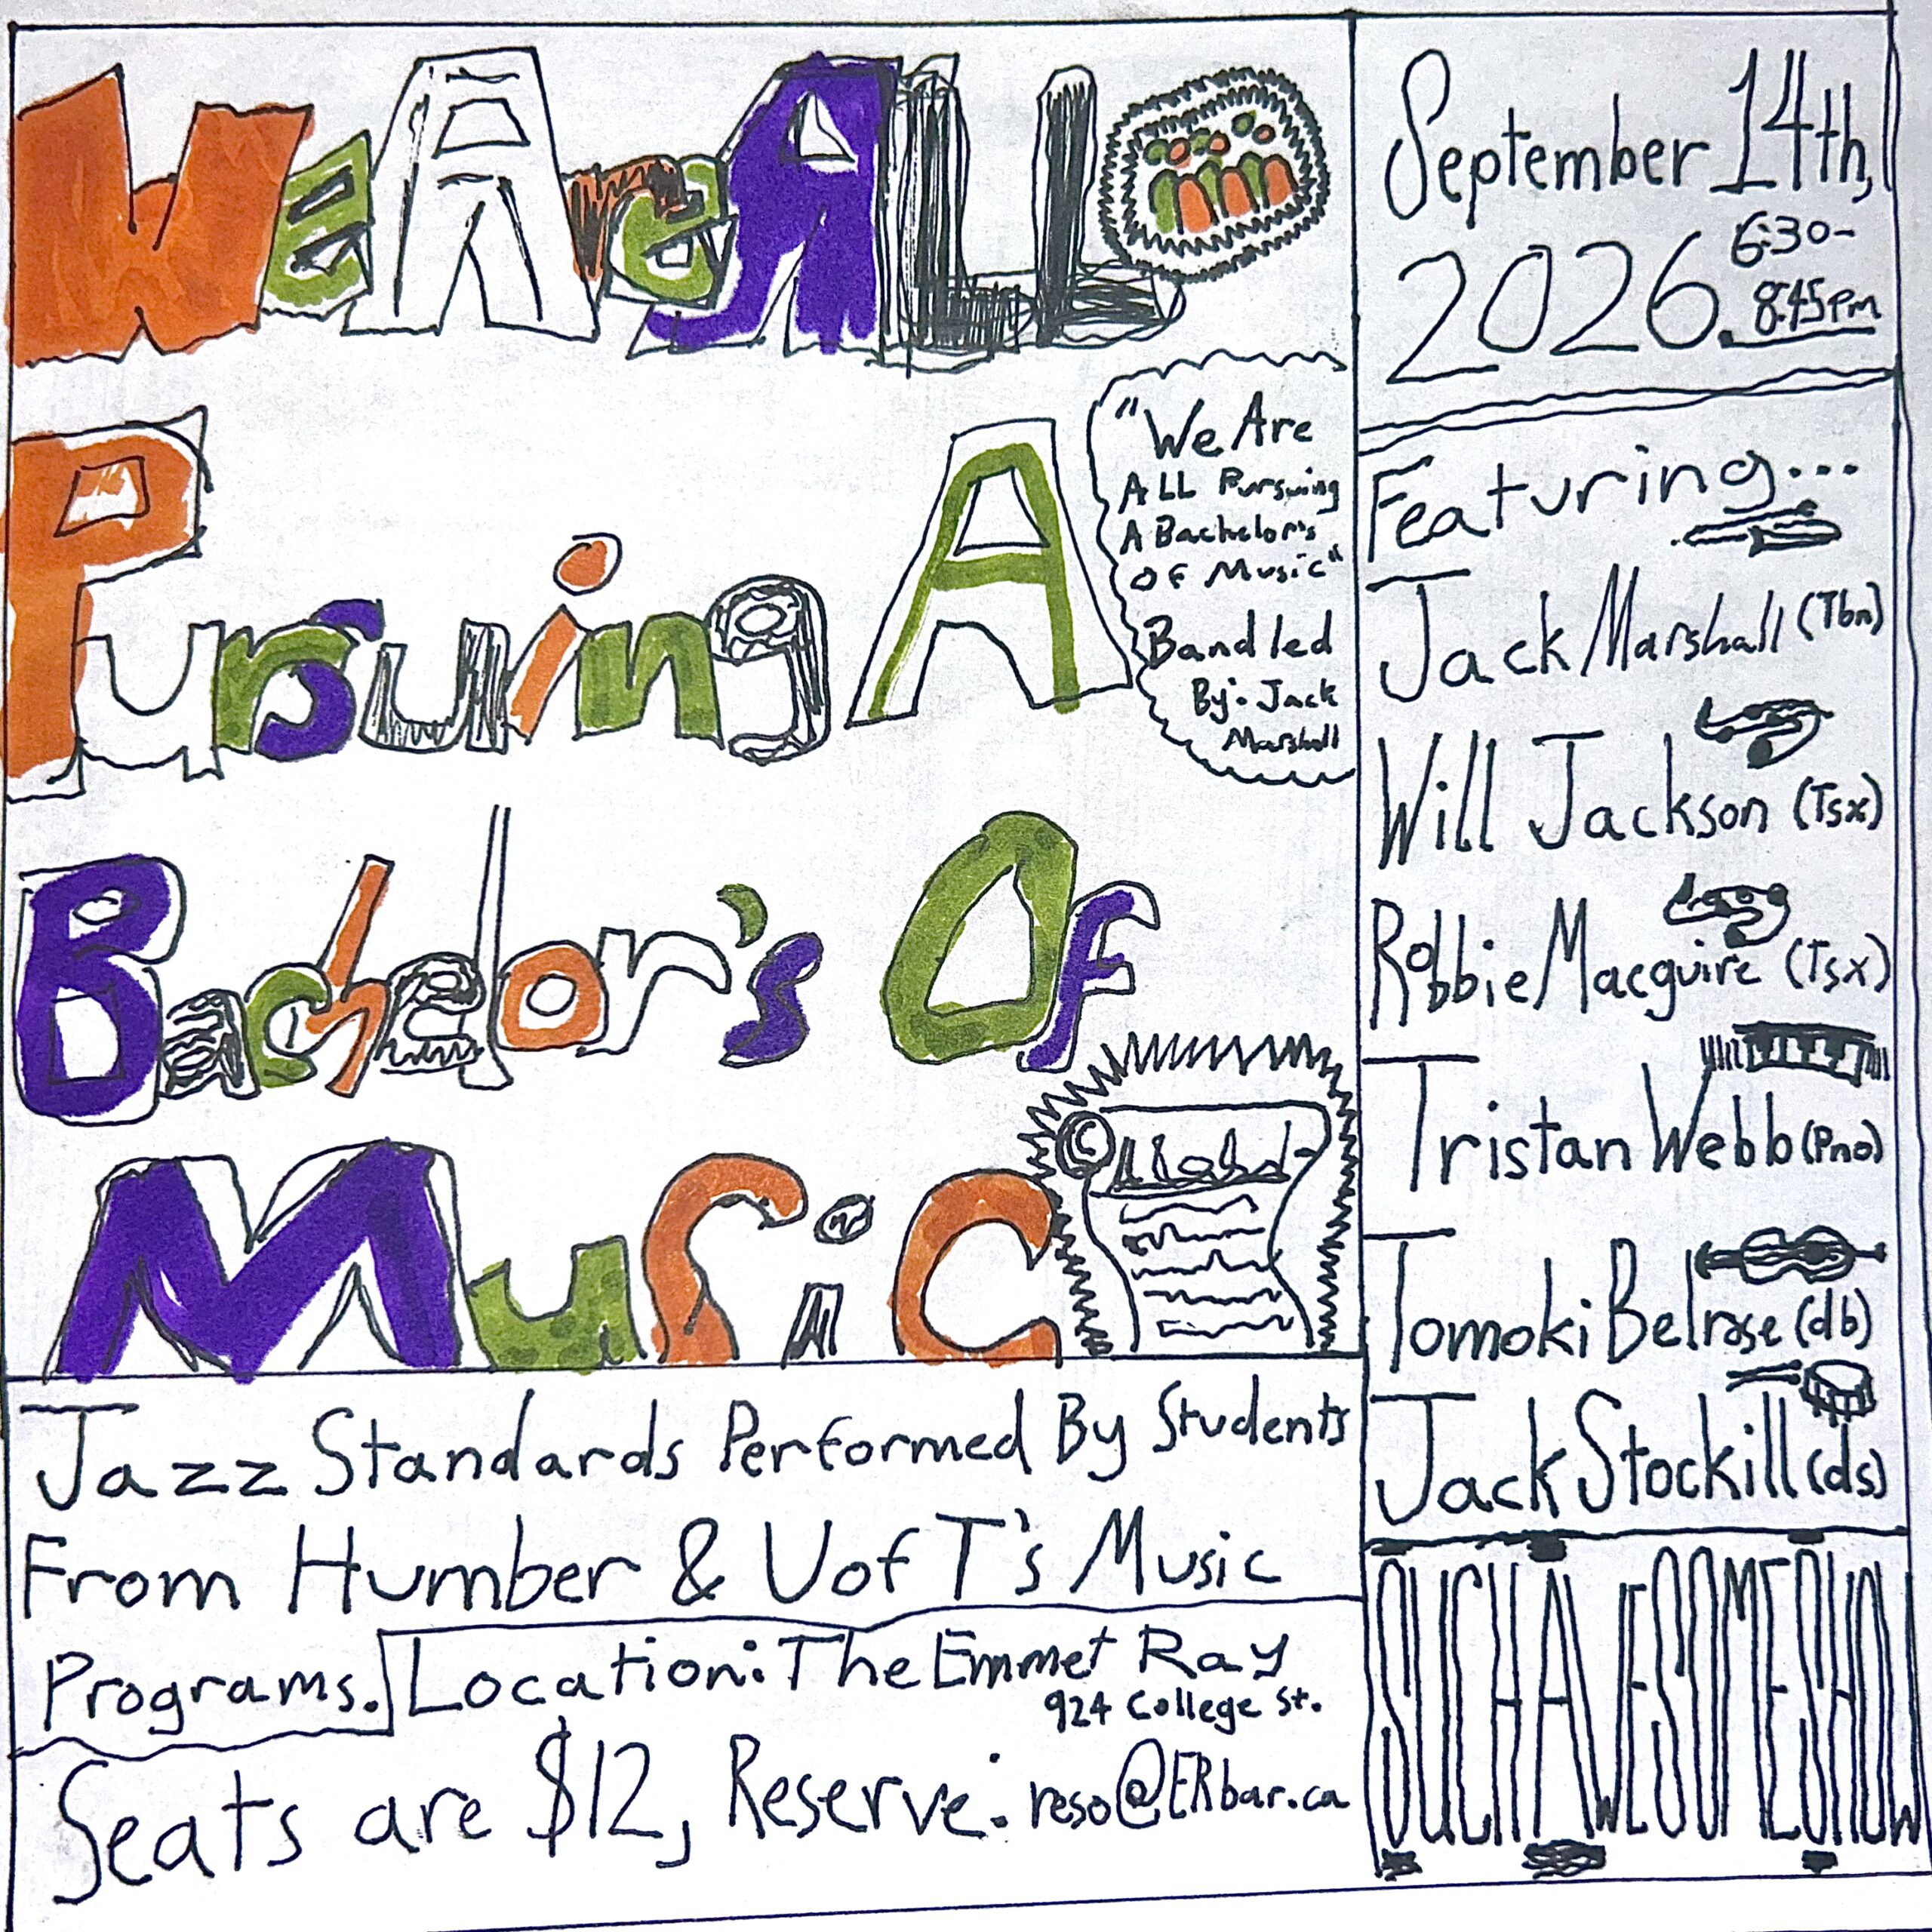 We Are All
Pursuing A
Bachelor's Of
Music
"We Are
ALL Pursuing
A Bachelor's
Of Music"
Band led
By: Jack
Marshall
September 14th,
2026. 6:30-
8:45pm
Featuring...
Jack Marshall (Tbn)
Will Jackson (Tsx)
Robbie Macguire (Tsx)
Tristan Webb (Pno)
Tomoki Belrose (db)
Jack Stockill (ds)
SUCH AWESOME SHOW
Jazz Standards Performed By Students
From Humber & U of T's Music
Programs.
Location: The Emmet Ray
924 College St.
Seats are $12, Reserve: reso@ERbar.ca